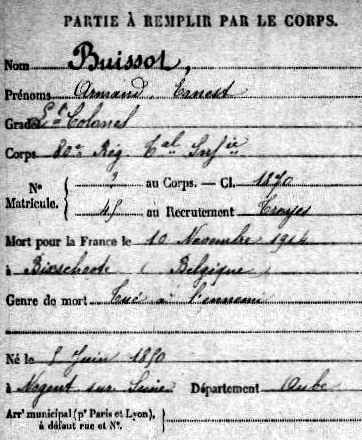 PARTIE À REMPLIR PAR LE CORPS.
Nom Buissot,
Prénoms Armand, Ernest
Grade Lt Colonel
Corps 80e Rég Tal Infie
No Matricule. ? au Corps. — Cl. 1870
45 au Recrutement Troyes
Mort pour la France le 10 Novembre 1914
à Bixschoote (Belgique)
Genre de mort Tué à l'ennemi
Né le 5 Juin 1850
à Nogent sur Seine Département Aube
Arrt municipal (pr Paris et Lyon),
à défaut rue et No.